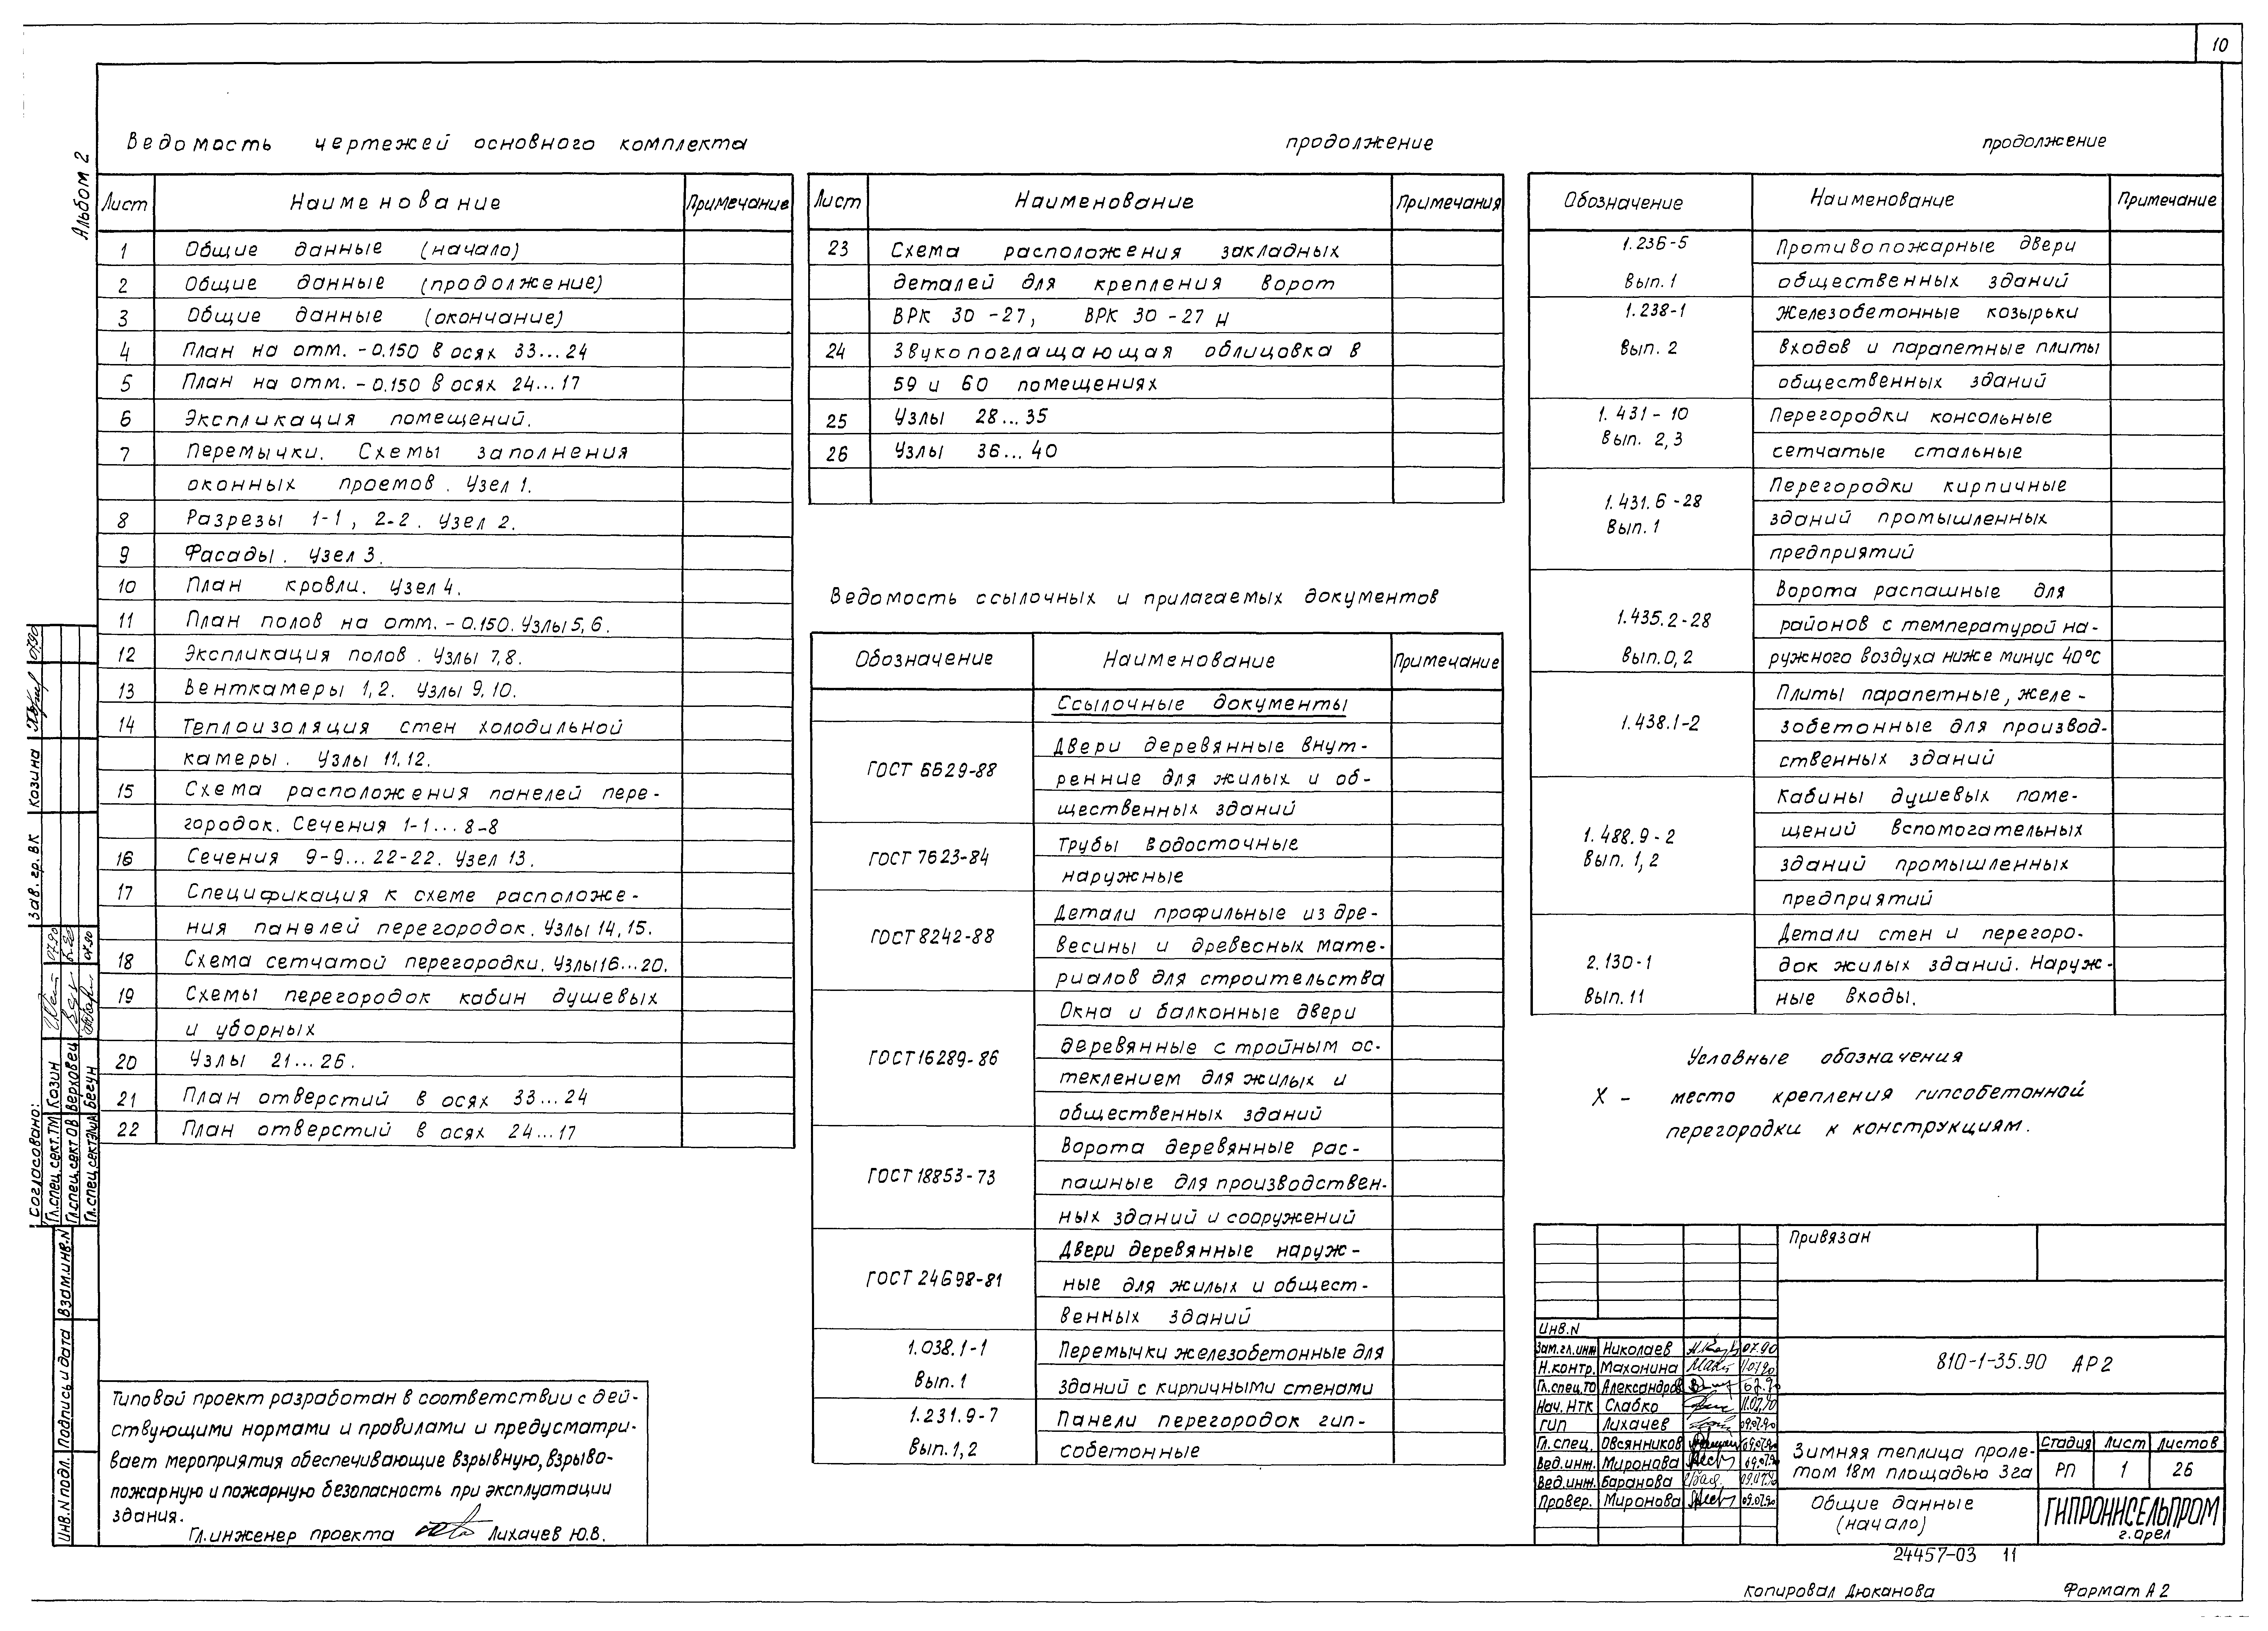 10
Альбом 2
Ведомость чертежей основного комплекта
Лист Наименование Примечание
1 Общие данные (начало)
2 Общие данные (продолжение)
3 Общие данные (окончание)
4 План на отм. -0.150 в осях 33...24
5 План на отм. -0.150 в осях 24...17
6 Экспликация помещений.
7 Перемычки. Схемы заполнения
оконных проемов. Узел 1.
8 Разрезы 1-1, 2-2. Узел 2.
9 Фасады. Узел 3.
10 План кровли. Узел 4.
11 План полов на отм. -0.150. Узлы 5,6.
12 Экспликация полов. Узлы 7,8.
13 Венткамеры 1,2. Узлы 9,10.
14 Теплоизоляция стен холодильной
камеры. Узлы 11,12.
15 Схема расположения панелей пере-
городок. Сечения 1-1...8-8
16 Сечения 9-9...22-22. Узел 13.
17 Спецификация к схеме расположе-
ния панелей перегородок. Узлы 14,15.
18 Схема сетчатой перегородки. Узлы 16...20.
19 Схемы перегородок кабин душевых
и уборных
20 Узлы 21...26.
21 План отверстий в осях 33...24
22 План отверстий в осях 24...17
продолжение
Лист Наименование Примечания
23 Схема расположения закладных
деталей для крепления ворот
ВРК 30-27, ВРК 30-27 Н
24 Звукопоглащающая облицовка в
59 и 60 помещениях
25 Узлы 28...35
26 Узлы 36...40
Ведомость ссылочных и прилагаемых документов
Обозначение Наименование Примечание
Ссылочные документы
ГОСТ 6629-88 Двери деревянные внут-
ренние для жилых и об-
щественных зданий
ГОСТ 7623-84 Трубы водосточные
наружные
ГОСТ 8242-88 Детали профильные из дре-
весины и древесных мате-
риалов для строительства
ГОСТ 16289-86 Окна и балконные двери
деревянные с тройным ос-
теклением для жилых и
общественных зданий
ГОСТ 18853-73 Ворота деревянные рас-
пашные для производствен-
ных зданий и сооружений
ГОСТ 24698-81 Двери деревянные наруж-
ные для жилых и общест-
венных зданий
1.038.1-1 Перемычки железобетонные для
Вып.1 зданий с кирпичными стенами
1.231.9-7 Панели перегородок гип-
Вып.1,2 собетонные
продолжение
Обозначение Наименование Примечание
1.236-5 Противопожарные двери
Вып.1 общественных зданий
1.238-1 Железобетонные козырьки
Вып.2 входов и парапетные плиты
общественных зданий
1.431-10 Перегородки консольные
Вып. 2,3 сетчатые стальные
1.431.6-28 Перегородки кирпичные
Вып.1 зданий промышленных
предприятий
Ворота распашные для
1.435.2-28 районов с температурой на-
Вып.0,2 ружного воздуха ниже минус 40°С
Плиты парапетные, желе-
1.438.1-2 зобетонные для производ-
ственных зданий
Кабины душевых поме-
1.488.9-2 щений вспомогательных
Вып.1,2 зданий промышленных
предприятий
Детали стен и перегоро-
2.130-1 док жилых зданий. Наруж-
Вып.11 ные входы.
Условные обозначения
Х - место крепления гипсобетонной
перегородки к конструкциям.
Типовой проект разработан в соответствии с дей-
ствующими нормами и правилами и предусматри-
вает мероприятия обеспечивающие взрывную, взрыво-
пожарную и пожарную безопасность при эксплуатации
здания.
Гл.инженер проекта Лихачев Ю.В.
Согласовано:
Гл.спец.сект.ТМ Козин 07.90
Гл.спец.сект.ОВ Верховец
Гл.спец.сект.ЭЛиА Бегун 07.90
Зав.гр.ВК Козина 07.90
Взам.инв.N
Подпись и дата
Инв.N подл.
Привязан
Инв.N
Зам.гл.инж Николаев 07.90
Н.контр. Махонина
Гл.спец.ТО Александров
Нач.НТК Слабко
ГИП Лихачев 09.07.90
Гл.спец. Овсянников 09.07.90
Вед.инж. Миронова 09.07.90
Вед.инж. Баранова 09.07.90
Провер. Миронова 09.07.90
810-1-35.90 АР2
Зимняя теплица проле-
том 18м площадью 3га
Стадия Лист Листов
РП 1 26
Общие данные
(начало)
ГИПРОНИСЕЛЬПРОМ
г.Орел
24457-03 11
Копировал Дюканова Формат А2